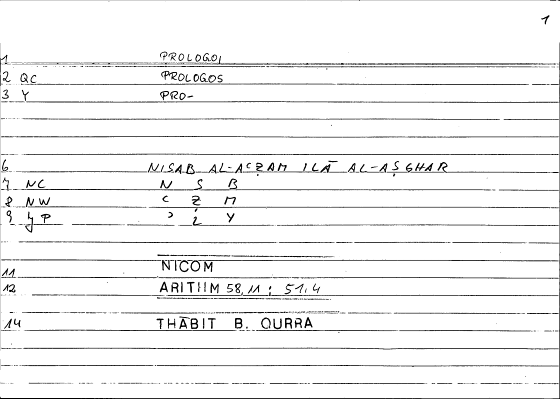 1
1 PROLOGOI
2 QC PROLOGOS
3 Y PRO-
6 NISAB AL-AcẒAM ILĀ AL-AṢGHAR
7 NC N S B
8 NW c Ẓ M
9 P Y
11 NICOM
12 ARITHM 58,11 ; 51,4
14 THĀBIT B. QURRA